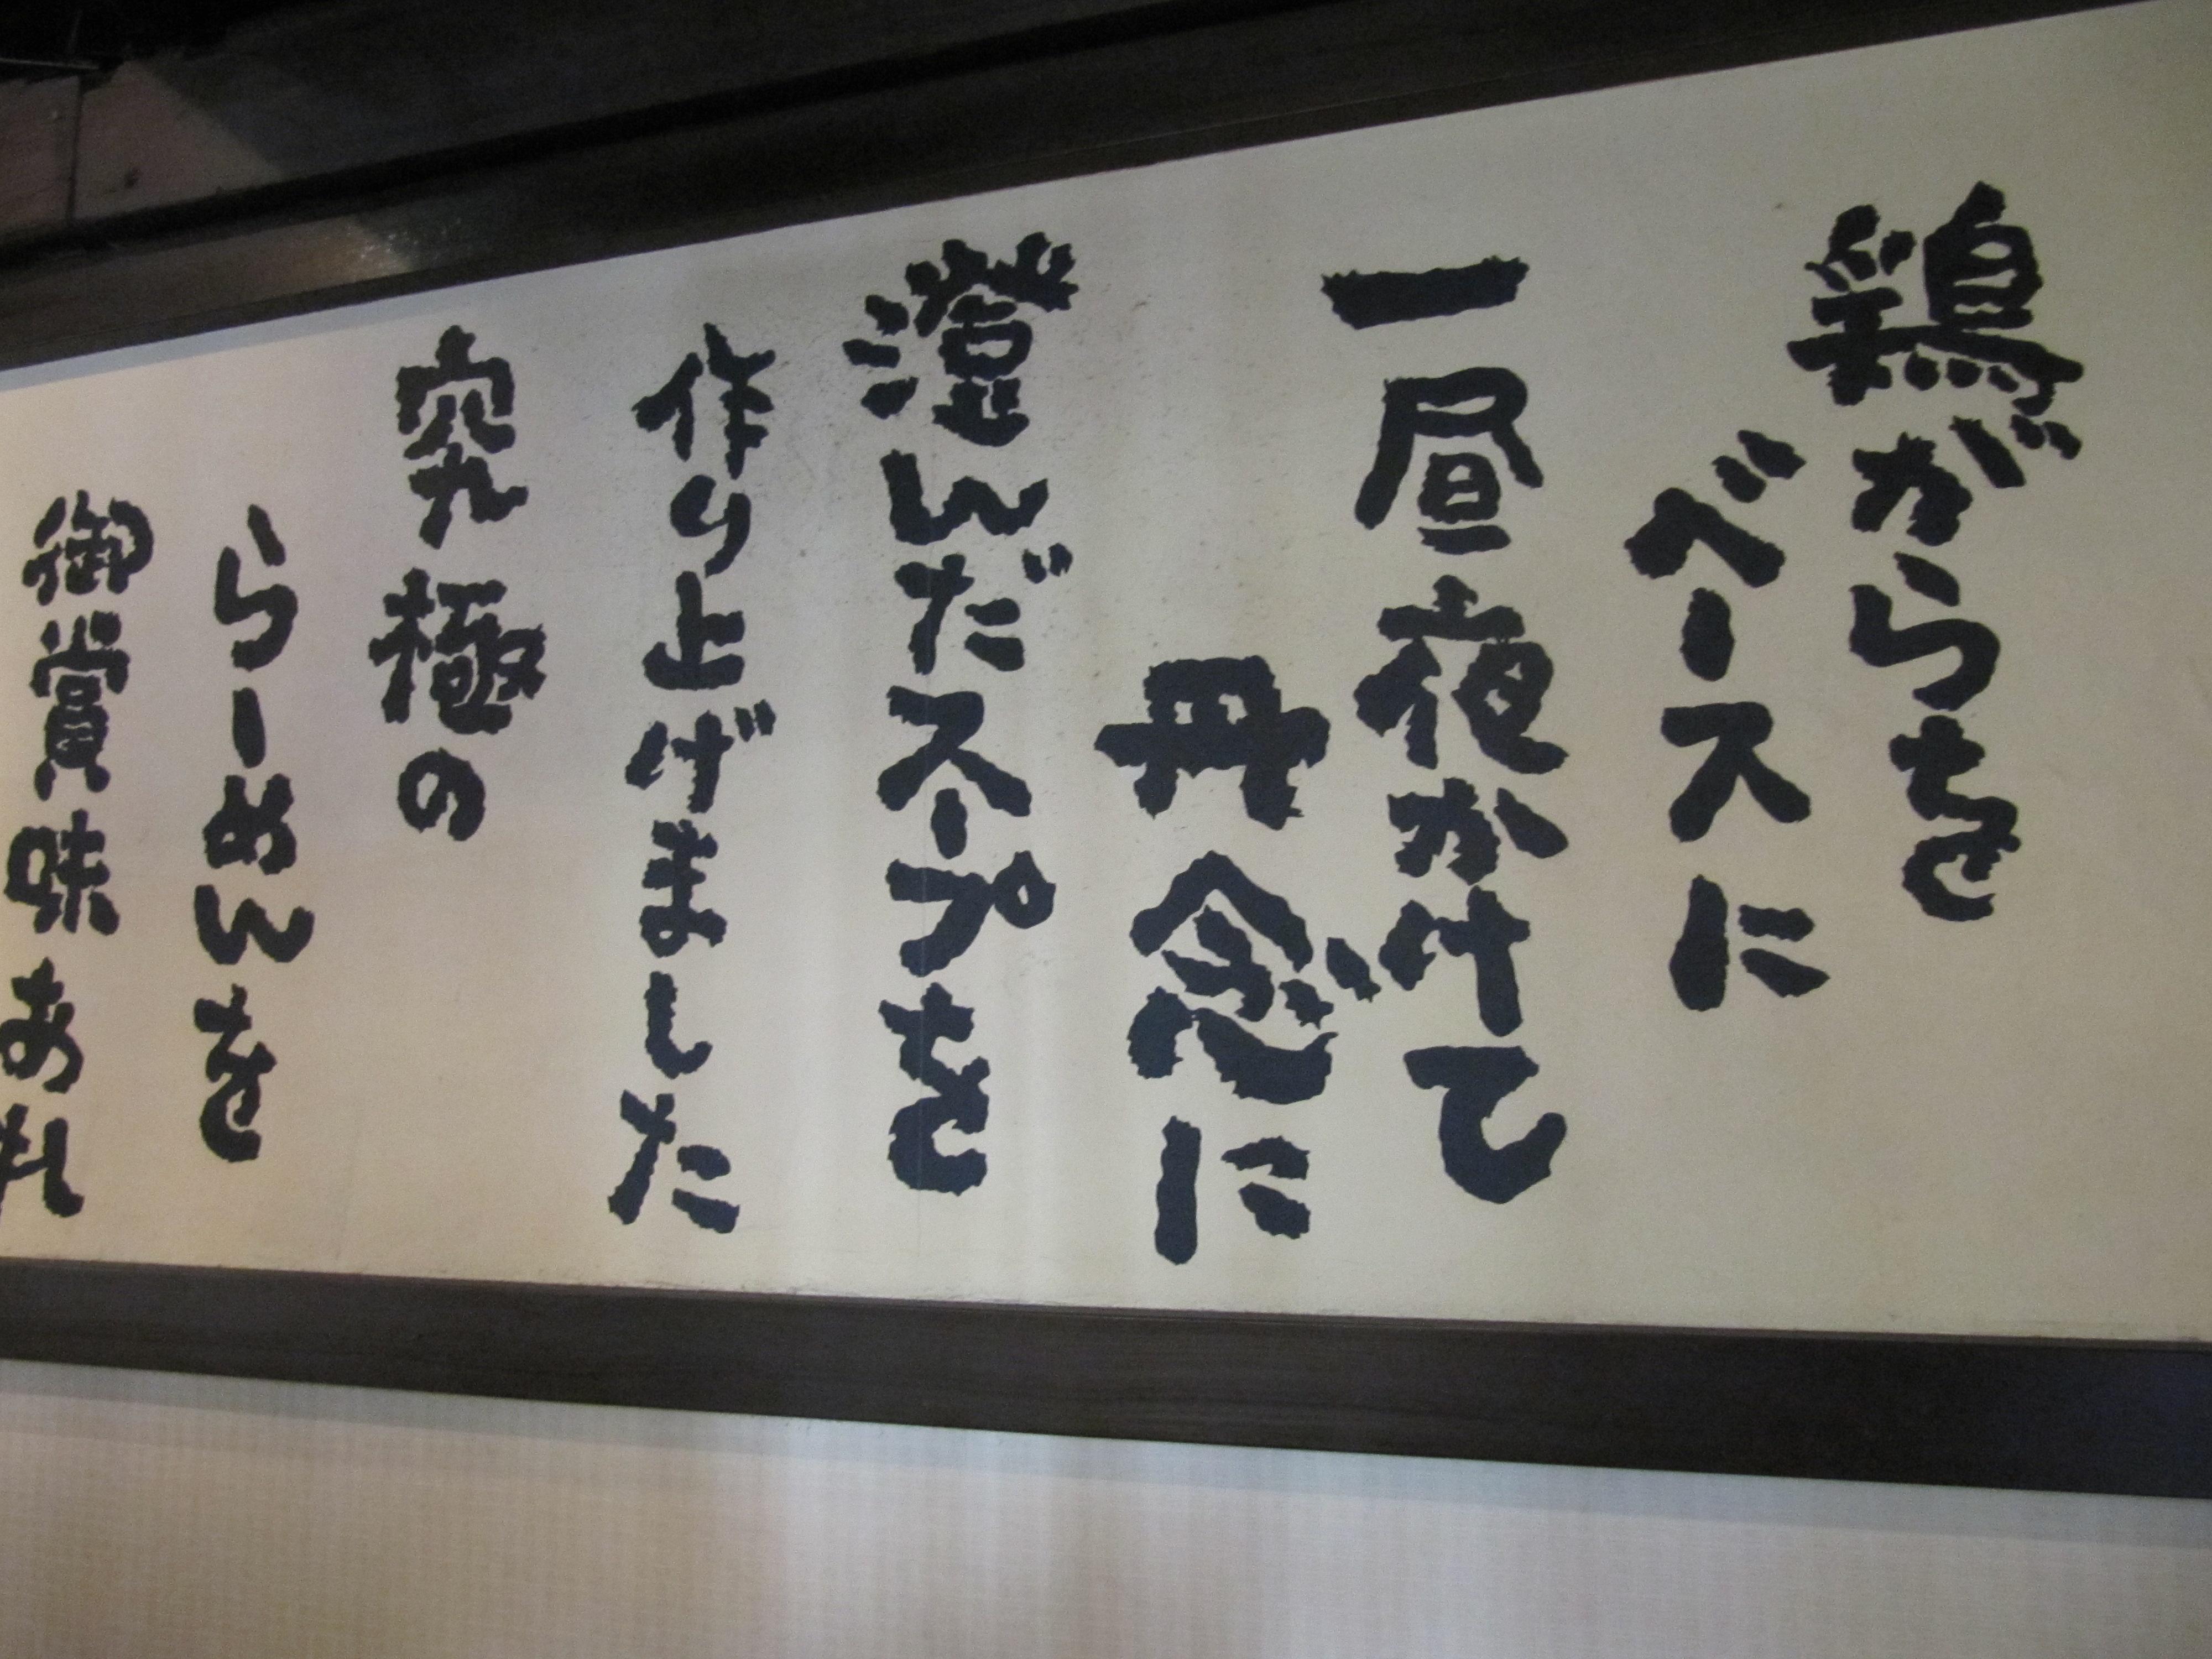 鶏がらを
ベースに
一昼夜かけて
丹念に
澄んだスープを
作り上げました
究極の
らーめんを
御賞味あれ